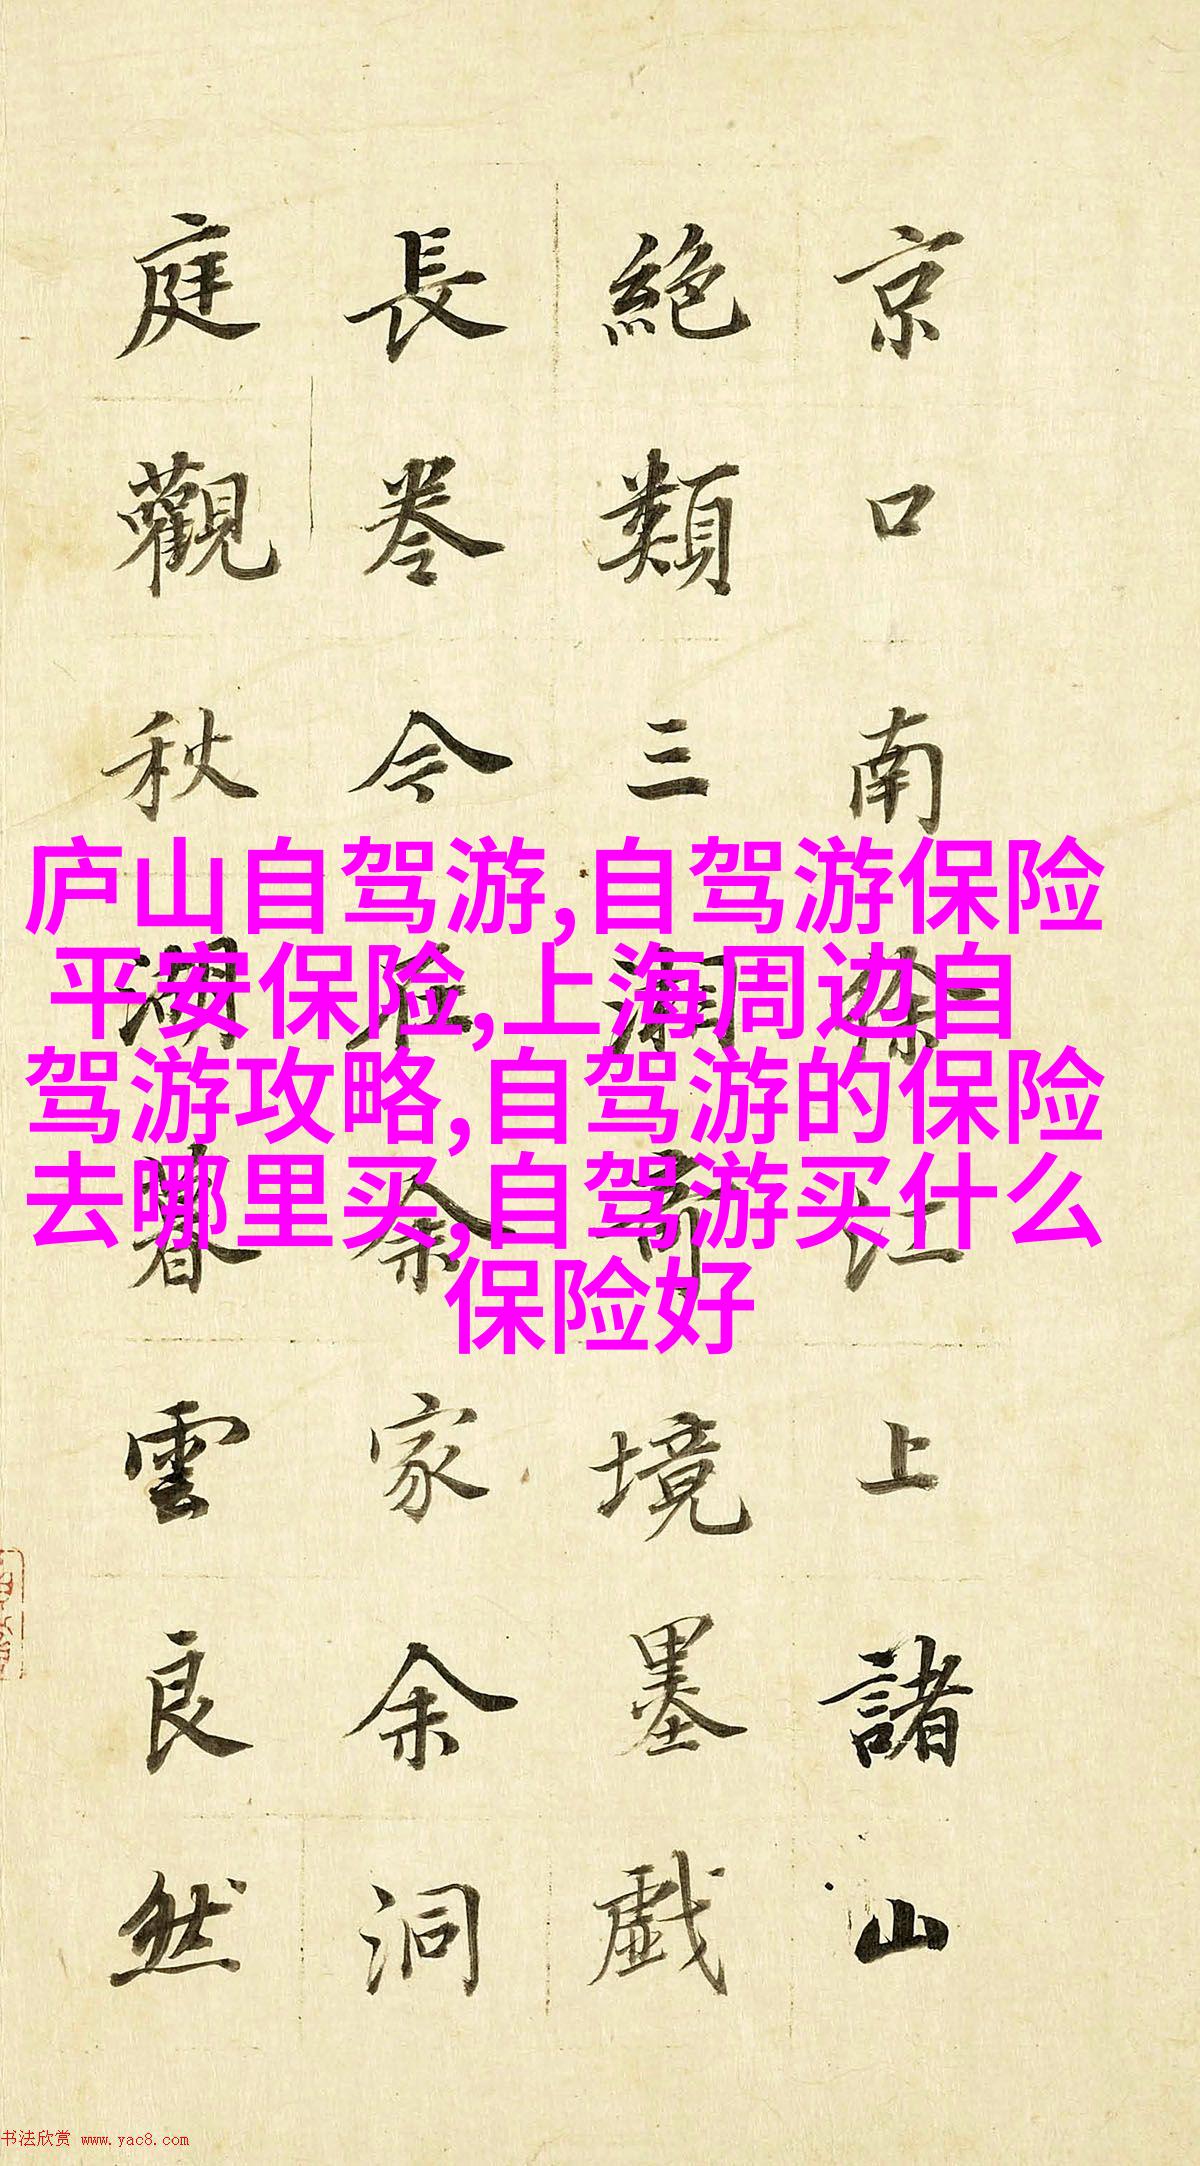 京口南徐江上諸山
絶類三湘奇境墨戲
長卷今在余家余洞
庭觀秋湖暮雲良然
庐山自驾游,自驾游保险
平安保险,上海周边自
驾游攻略,自驾游的保险
去哪里买,自驾游买什么
保险好
书法欣赏 www.yac8.com